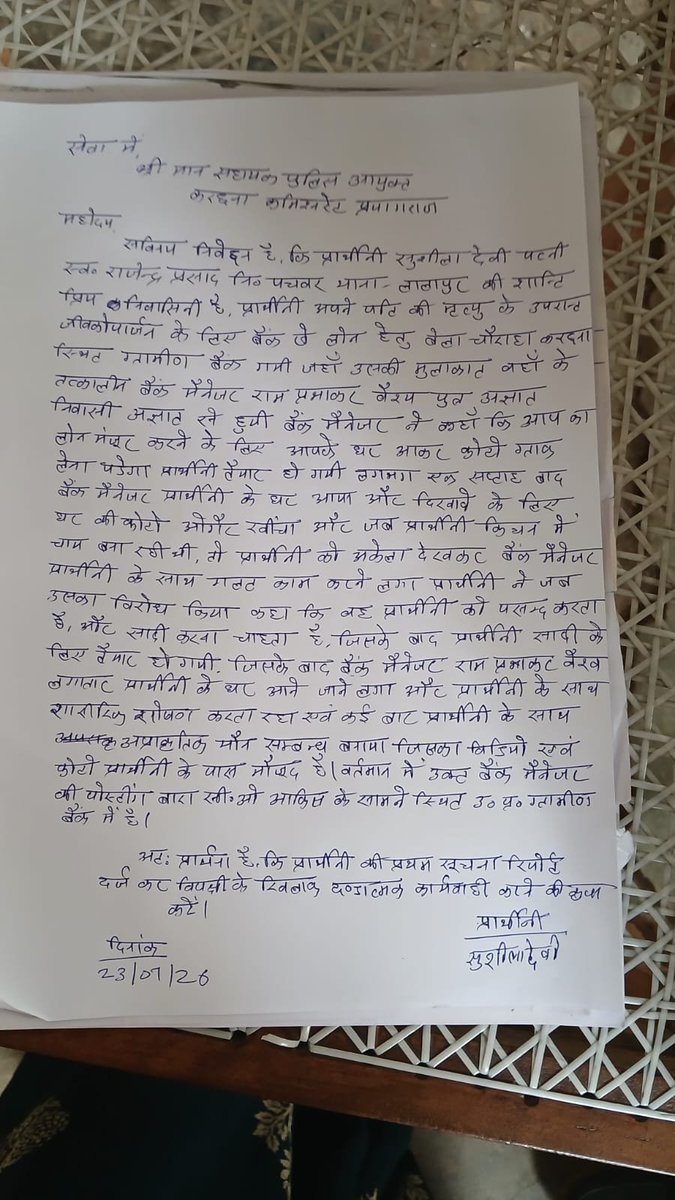 सेवा में,
श्री मान सहायक पुलिस आयुक्त
करछना कमिश्नरेट प्रयागराज
महोदय,
सविनय निवेदन है, कि प्रार्थीनी सुशीला देवी पत्नी
स्व० राजेन्द्र प्रसाद नि० पचवर थाना - लालापुर की शान्ति
प्रिय निवासिनी है, प्रार्थीनी अपने पति की मृत्यु के उपरान्त
जीवकोपार्जन के लिए बैंक से लोन हेतु बेला चौराहा करछना
स्थित ग्रामीण बैंक गयी जहाँ उसकी मुलाकात वहाँ के
तत्कालीन बैंक मैनेजर राम प्रभाकर वैश्य पुत्र अज्ञात
निवासी अज्ञात से हुयी बैंक मैनेजर ने कहाँ कि आप का
लोन मंजूर करने के लिए आपके घर आकर फोटो ग्राफ
लेना पडेगा प्रार्थीनी तैयार हो गयी लगभग एक सप्ताह बाद
बैंक मैनेजर प्रार्थीनी के घर आया और दिखावे के लिए
घर की फोटो ओगैर खींचा और जब प्रार्थीनी किचन में
चाय बना रही थी, तो प्रार्थीनी को अकेला देखकर बैंक मैनेजर
प्रार्थीनी के साथ गलत काम करने लगा प्रार्थीनी ने जब
उसका विरोध किया कहा कि वह प्रार्थीनी को पसन्द करता
है, और सादी करना चाहता है, जिसके बाद प्रार्थीनी सादी के
लिए तैयार हो गयी, जिसके बाद बैंक मैनेजर राम प्रभाकर वैश्य
लगातार प्रार्थीनी के घर आने जाने लगा और प्रार्थीनी के साथ
शारीरिक शोषण करता रहा एवं कई बार प्रार्थीनी के साथ
अप्राकतिक यौन सम्बन्ध बनाया जिसका विडियो एवं
फोटो प्रार्थीनी के पास मौजूद है। वर्तमान में उक्त बैंक मैनेजर
की पोस्टींग बारा सी०ओ आफिस के सामने स्थित उ० प्र० ग्रामीण
बैंक में है।
अतः प्रार्थना है, कि प्रार्थीनी की प्रथम सूचना रिपोर्ट
दर्ज कर विपक्षी के खिलाफ दण्डात्मक कार्यवाही करने की कृपा
करें।
प्रार्थीनी
सुशीला देवी
दिनांक
23/07/26